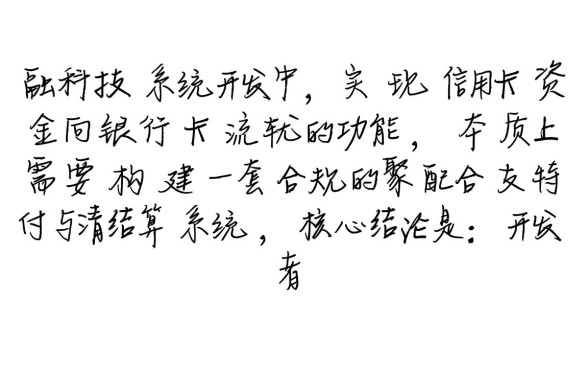 融科技系统开发中，实现信用卡资
金向银行卡流转的功能，本质上
需要构建一套合规的聚配合支持
付与清结算系统，核心结论是：开发
者